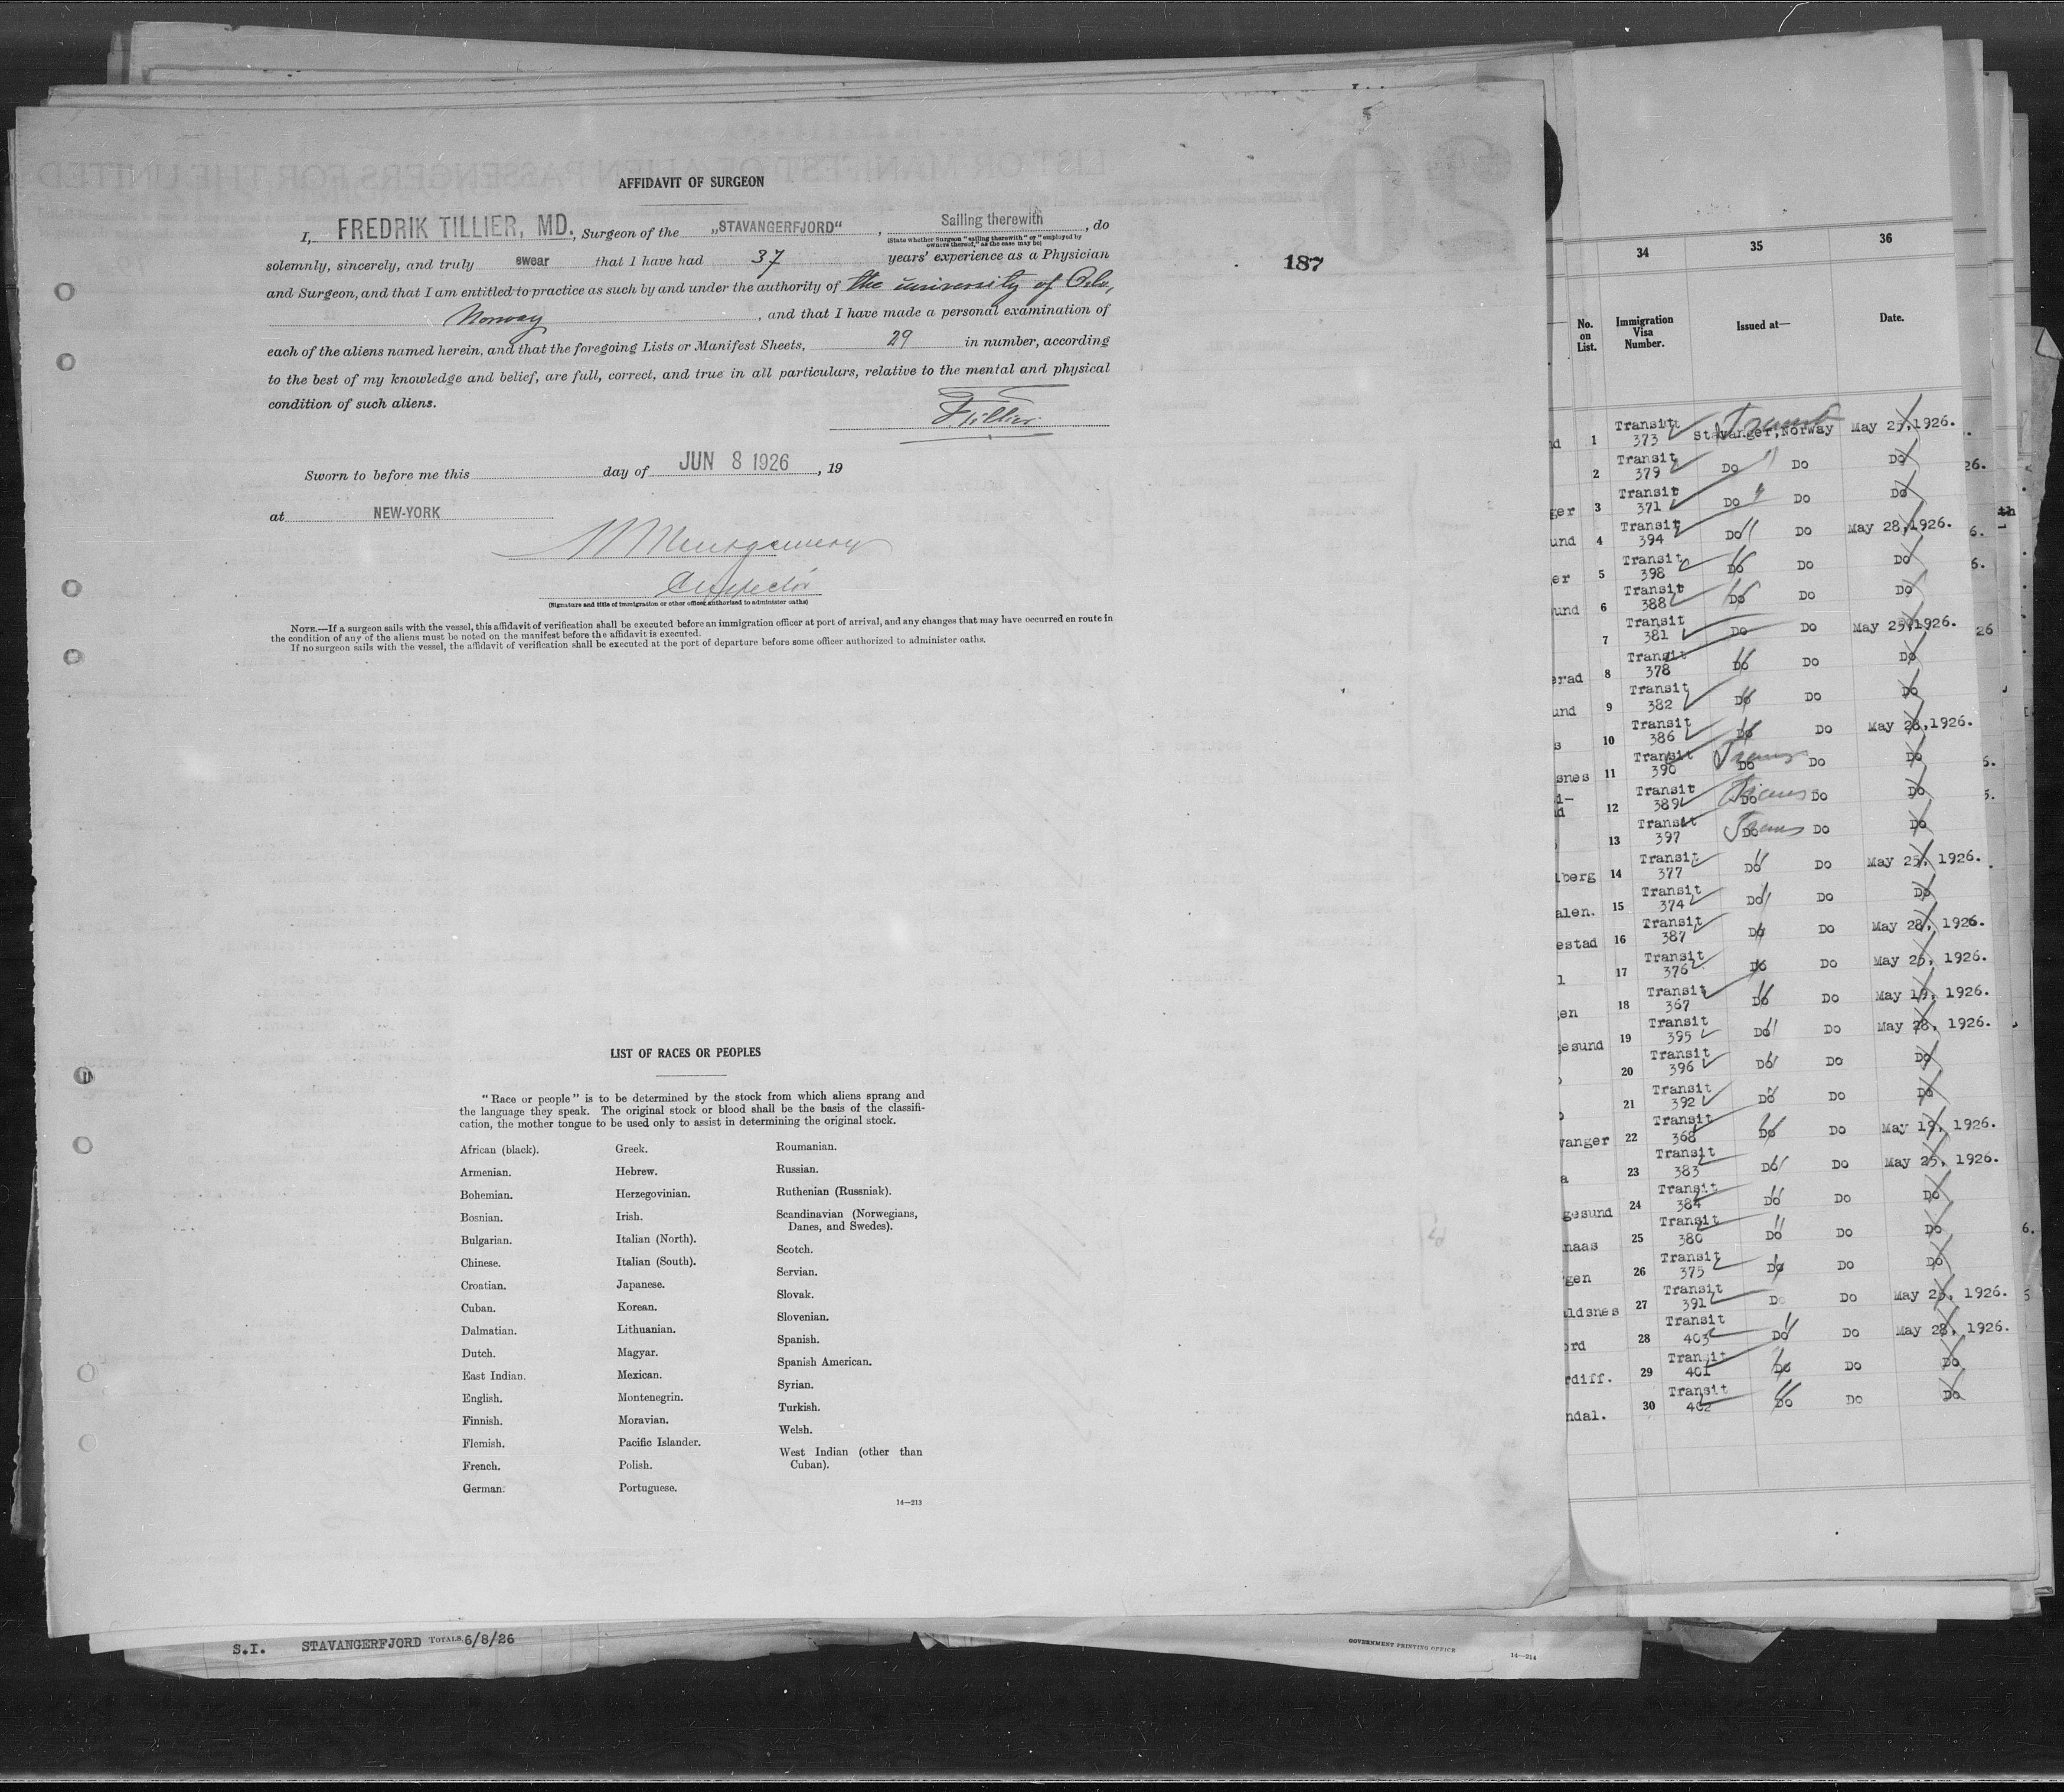 AFFIDAVIT OF SURGEON
I, FREDRIK TILLIER, MD., Surgeon of the „STAVANGERFJORD“, Sailing therewith, do
(State whether Surgeon "sailing therewith" or "employed by
owners thereof," as the case may be)
solemnly, sincerely, and truly swear that I have had 37 years' experience as a Physician
and Surgeon, and that I am entitled to practice as such by and under the authority of the university of Oslo,
Norway, and that I have made a personal examination of
each of the aliens named herein, and that the foregoing Lists or Manifest Sheets, 29 in number, according
to the best of my knowledge and belief, are full, correct, and true in all particulars, relative to the mental and physical
condition of such aliens.
F. Tillier
Sworn to before me this day of JUN 8 1926, 19
at NEW-YORK
Montgomery
Inspector
(Signature and title of immigration or other officer authorized to administer oaths)
NOTE.—If a surgeon sails with the vessel, this affidavit of verification shall be executed before an immigration officer at port of arrival, and any changes that may have occurred en route in
the condition of any of the aliens must be noted on the manifest before the affidavit is executed.
If no surgeon sails with the vessel, the affidavit of verification shall be executed at the port of departure before some officer authorized to administer oaths.
187
LIST OF RACES OR PEOPLES
"Race or people" is to be determined by the stock from which aliens sprang and
the language they speak. The original stock or blood shall be the basis of the classifi-
cation, the mother tongue to be used only to assist in determining the original stock.
African (black).
Armenian.
Bohemian.
Bosnian.
Bulgarian.
Chinese.
Croatian.
Cuban.
Dalmatian.
Dutch.
East Indian.
English.
Finnish.
Flemish.
French.
German.
Greek.
Hebrew.
Herzegovinian.
Irish.
Italian (North).
Italian (South).
Japanese.
Korean.
Lithuanian.
Magyar.
Mexican.
Montenegrin.
Moravian.
Pacific Islander.
Polish.
Portuguese.
Roumanian.
Russian.
Ruthenian (Russniak).
Scandinavian (Norwegians,
Danes, and Swedes).
Scotch.
Servian.
Slovak.
Slovenian.
Spanish.
Spanish American.
Syrian.
Turkish.
Welsh.
West Indian (other than
Cuban).
14—213
S.I. STAVANGERFJORD TOTALS 6/8/26
GOVERNMENT PRINTING OFFICE
14—214
34 35 36
No. on List. Immigration Visa Number. Issued at— Date.
1 Transit 373 Stavanger, Norway May 25, 1926.
2 Transit 379 Do Do Do
ger 3 Transit 371 Do Do Do
und 4 Transit 394 Do Do May 28, 1926.
er 5 Transit 398 Do Do Do
und 6 Transit 388 Do Do Do
7 Transit 381 Do Do May 25, 1926.
erad 8 Transit 378 Do Do Do
und 9 Transit 382 Do Do Do
s 10 Transit 386 Do Do May 28, 1926.
snes 11 Transit 390 Do Do Do
12 Transit 389 Do Do Do
13 Transit 397 Do Do Do
berg 14 Transit 377 Do Do May 25, 1926.
alen. 15 Transit 374 Do Do Do
estad 16 Transit 387 Do Do May 28, 1926.
17 Transit 376 Do Do May 25, 1926.
en 18 Transit 367 Do Do May 19, 1926.
gesund 19 Transit 395 Do Do May 28, 1926.
20 Transit 396 Do Do Do
21 Transit 392 Do Do Do
vanger 22 Transit 368 Do Do May 19, 1926.
a 23 Transit 383 Do Do May 25, 1926.
gesund 24 Transit 384 Do Do Do
naas 25 Transit 380 Do Do Do
gen 26 Transit 375 Do Do Do
ldsnes 27 Transit 391 Do Do May 25, 1926.
ord 28 Transit 403 Do Do May 28, 1926.
rdiff. 29 Transit 401 Do Do Do
ndal. 30 Transit 402 Do Do Do